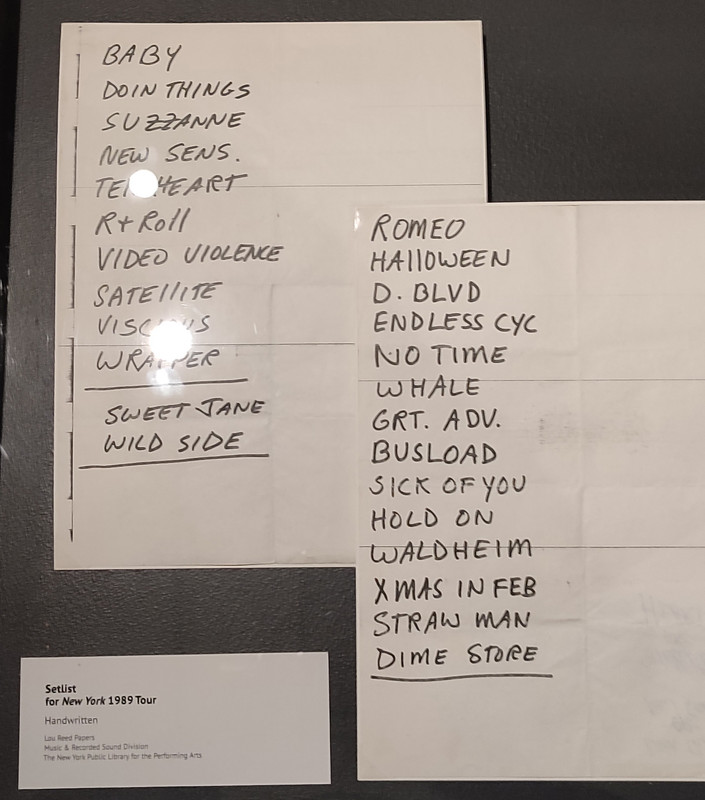 BABY
DOIN THINGS
SUZZANNE
NEW SENS.
HEART
R+Roll
VIDEO VIOLENCE
SATEllITE
WRAPPER
SWEET JANE
WILD SIDE
ROMEO
HAllOWEEN
D. BLVD
ENDLESS CYC
NO TIME
WHALE
GRT. ADV.
BUSLOAD
SICK OF YOU
HOLD ON
WALDHEIM
XMAS IN FEB
STRAW MAN
DIME STORE
Setlist
for New York 1989 Tour
Handwritten
Lou Reed Papers
Music & Recorded Sound Division
The New York Public Library for the Performing Arts